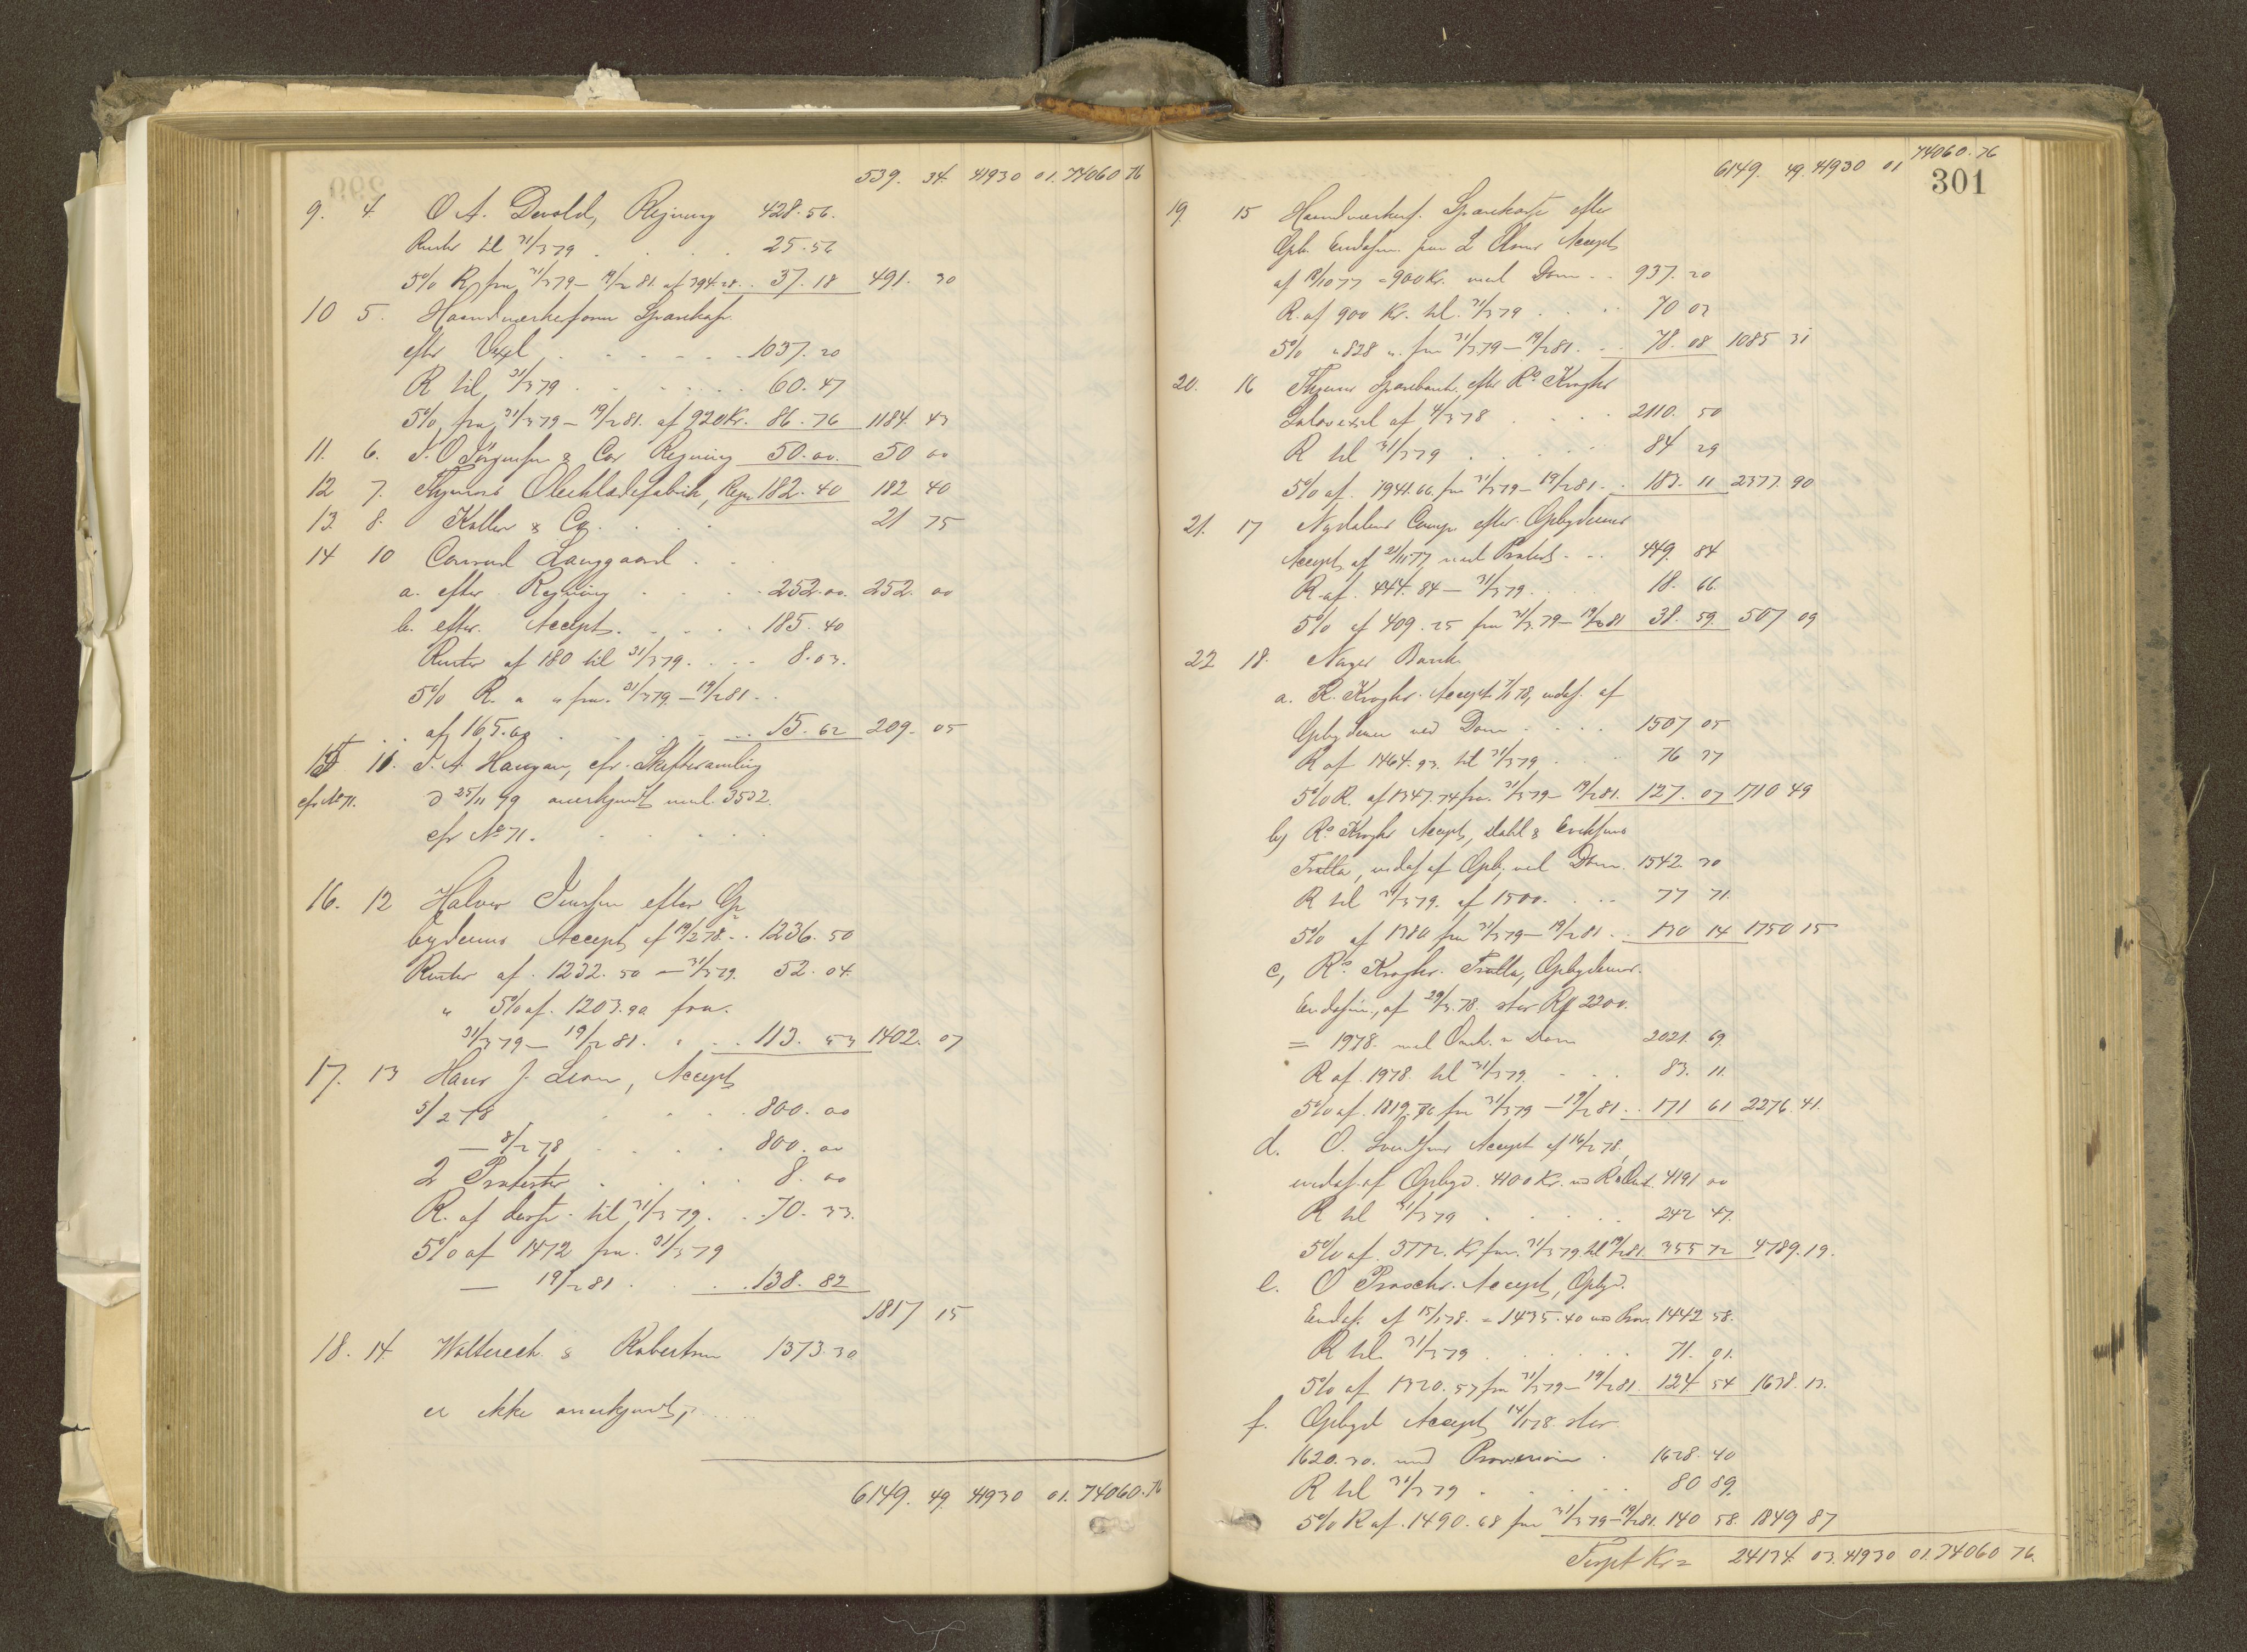 539. 34. 41930 01. 74060 76
9. 4. O A. Devold, Regning 428. 56.
Renter til 31/3 79 . . . . 25. 56
5% R fra 31/3 79 – 19/2 81. af 394.28 . . 37. 18 491. 30
10 5. Haandværkerforen Sparekas.
efter Vexel . . . . . . 1037. 20
R til 31/3 79 . . . . . . 60. 47
5% fra 31/3 79 – 19/2 81. af 920 Kr. 86. 76 1184. 43
11. 6. J. O Jörgensen & Cos Regning 50. 00. 50 00
12 7. Regn 182. 40 182 40
13. 8. & Co. . . . 21 75
14 10 Conrad Langgaard . . .
a. efter Regning . . . . 252. 00. 252. 00
b. efter. Accept. . . . . 185. 40
Renter af 180 til 31/3 79. . . . 8. 03.
5% R. " " fra. 31/3 79 – 19/2 81. .
. . af 165.60 . . . . . . 15. 62 209. 05
15 11. J. A. Haugan, cfr. Skiftesamling
cfr No 71. d 25/11 79 anerkjendt med. 3532.
cfr No 71.
16. 12 Halvor Jensen efter Op
bydernes Accept af 19/2 78. . . 1236. 50
Renter af. 1232. 50 – 31/3 79. 52. 04.
" 5% af. 1203. 90. fra.
31/3 79 – 19/2 81. . . . 113. 53 1402. 07
17. 13 Hans J. Accept
5/2 78 . . . . 800. 00
– 8/2 78 . . . . 800. 00
2 Protester . . . . 8. 00
R. af til 31/3 79. . . 70. 33.
5% af 1472 fra. 31/3 79
– 19/2 81 . . . . 138. 82
1817 15
18. 14. & Robertson 1373. 30
er ikke anerkjendt, . . . .
6149. 49. 41930 01. 74060. 76
74060. 76
6149. 49. 41930 01
301
19 15 Haandværkerf. Sparekasse efter
Opb. Endossm. paa L Accept
af 19/10 77 = 900 Kr. med Dom . . 937. 20
R. af 900 Kr. til. 31/3 79 . . . . 70 03
5% " 828 ". fra 31/3 79 – 19/2 81. . . 78. 08 1085 31
20. 16 Sparebank. efter Rs. Kroghs
af 4/3 78 . . . 2110. 50
R til 31/3 79 . . . . . 84 29
5% af. 1941. 66. fra 31/3 79 – 19/2 81. . 183. 11 2377. 90
21. 17 Nydalens Comp. efter Opbydernes
Accept af 21/11 77 med Protest. . . 449. 84
R. af. 444. 84 – 31/3 79. . . 18. 66.
5% af 409. 25 fra 31/3 79 – 19/2 81 38. 59. 507 09
22 18. Bank.
a. R. Kroghs. Accept 7/1 78, endos. af
Opbyderen med Dom . . . . 1507 05
R af 1464. 93. til 31/3 79 . . . 76 37
5% R. af 1347. 74 fra. 31/3 79 – 19/2 81. 127. 07 1710 49
b) Rs. Kroghs Accept, Dahl &
Tratta, endos af Opb, med Dom. 1542. 30
R til 31/3 79. af 1500. . . . 77 71.
5% af 1380 fra 31/3 79 – 19/2 81. . 130 14 1750 15
c, Rs. Kroghs. Tratta, Opbydernes.
Endossm., af 29/3. 78. stor 2200.
= 1978. med Omk. & Dom 2021. 69.
R af. 1978. til 31/3 79. . . . 83. 11.
5% af. 1819. 76 fra 31/3 79 – 19/2 81. . 171 61 2276. 41.
d. O. Accept af 16/2 78,
endos. af Opbyd. 4100 Kr. 4191 00
R til 31/3 79 . . . . . 242 47.
5% af. 3772. Kr fra. 31/3 79 til 19/2 81. 355 72 4789. 19.
e. O Accept, Opbyd.
Endos. af 15/1 78. = 1435. 40 med Prov. 1442 58.
R til. 31/3 79 . . . . . . 71. 01.
5% af 1320. 57 fra 31/3 79 – 19/2 81. 124 54 1638. 13.
f. Opbyd Accept 14/1 78. stor.
1620. 30. med Provision . 1628. 40
R til 31/3 79 . . . . . 80 89.
5% R af. 1490. 68 fra 31/3 79 – 19/2 81. 140 58. 1849 87
Trspt Kr = 24134. 03. 41930 01. 74060 76.